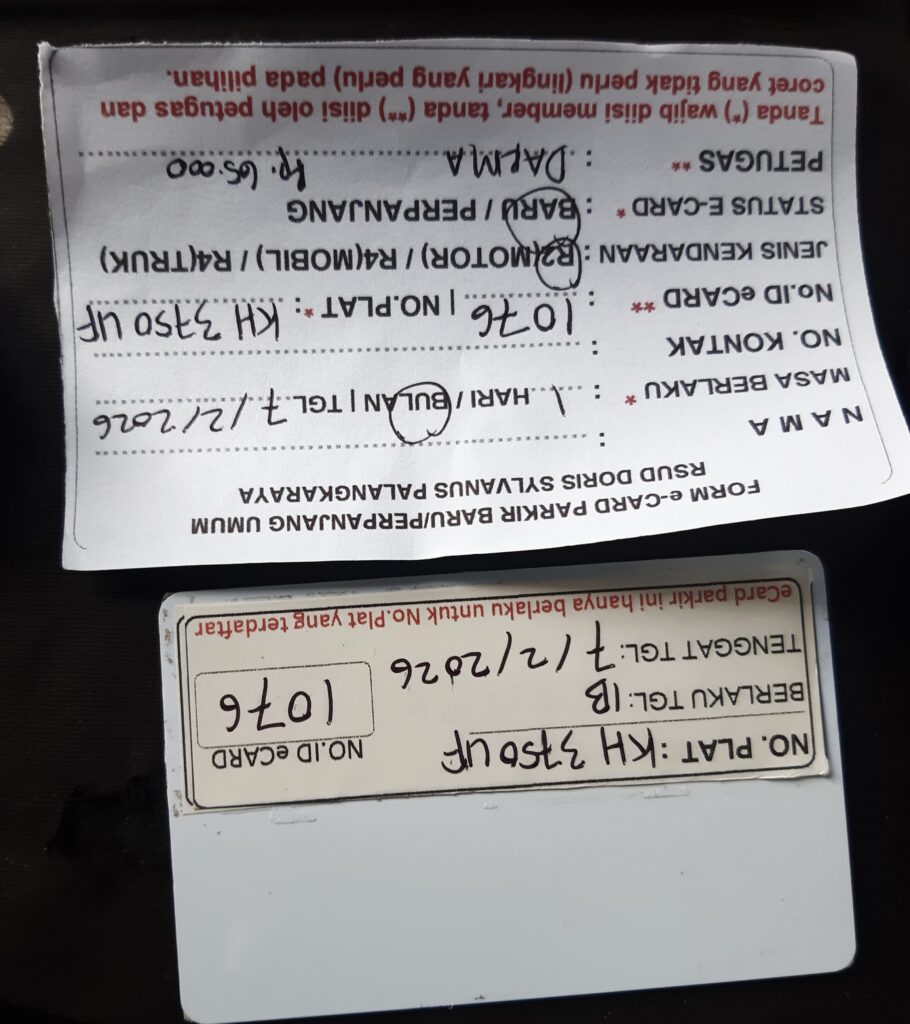 FORM e-CARD PARKIR BARU/PERPANJANG UMUM
RSUD DORIS SYLVANUS PALANGKARAYA
N A M A :
MASA BERLAKU * : 1 HARI / BULAN | TGL 7/2/2026
NO. KONTAK :
No.ID eCARD ** : 1076 | NO.PLAT *: KH 3750 UF
JENIS KENDARAAN : R2(MOTOR) / R4(MOBIL) / R4(TRUK)
STATUS E-CARD * : BARU / PERPANJANG
PETUGAS ** : DALMA Rp. 65.000
Tanda (*) wajib diisi member, tanda (**) diisi oleh petugas dan
coret yang tidak perlu (lingkari yang perlu) pada pilihan.
NO. PLAT : KH 3750 UF
NO.ID eCARD
BERLAKU TGL: 1B
1076
TENGGAT TGL: 7/2/2026
eCard parkir ini hanya berlaku untuk No.Plat yang terdaftar